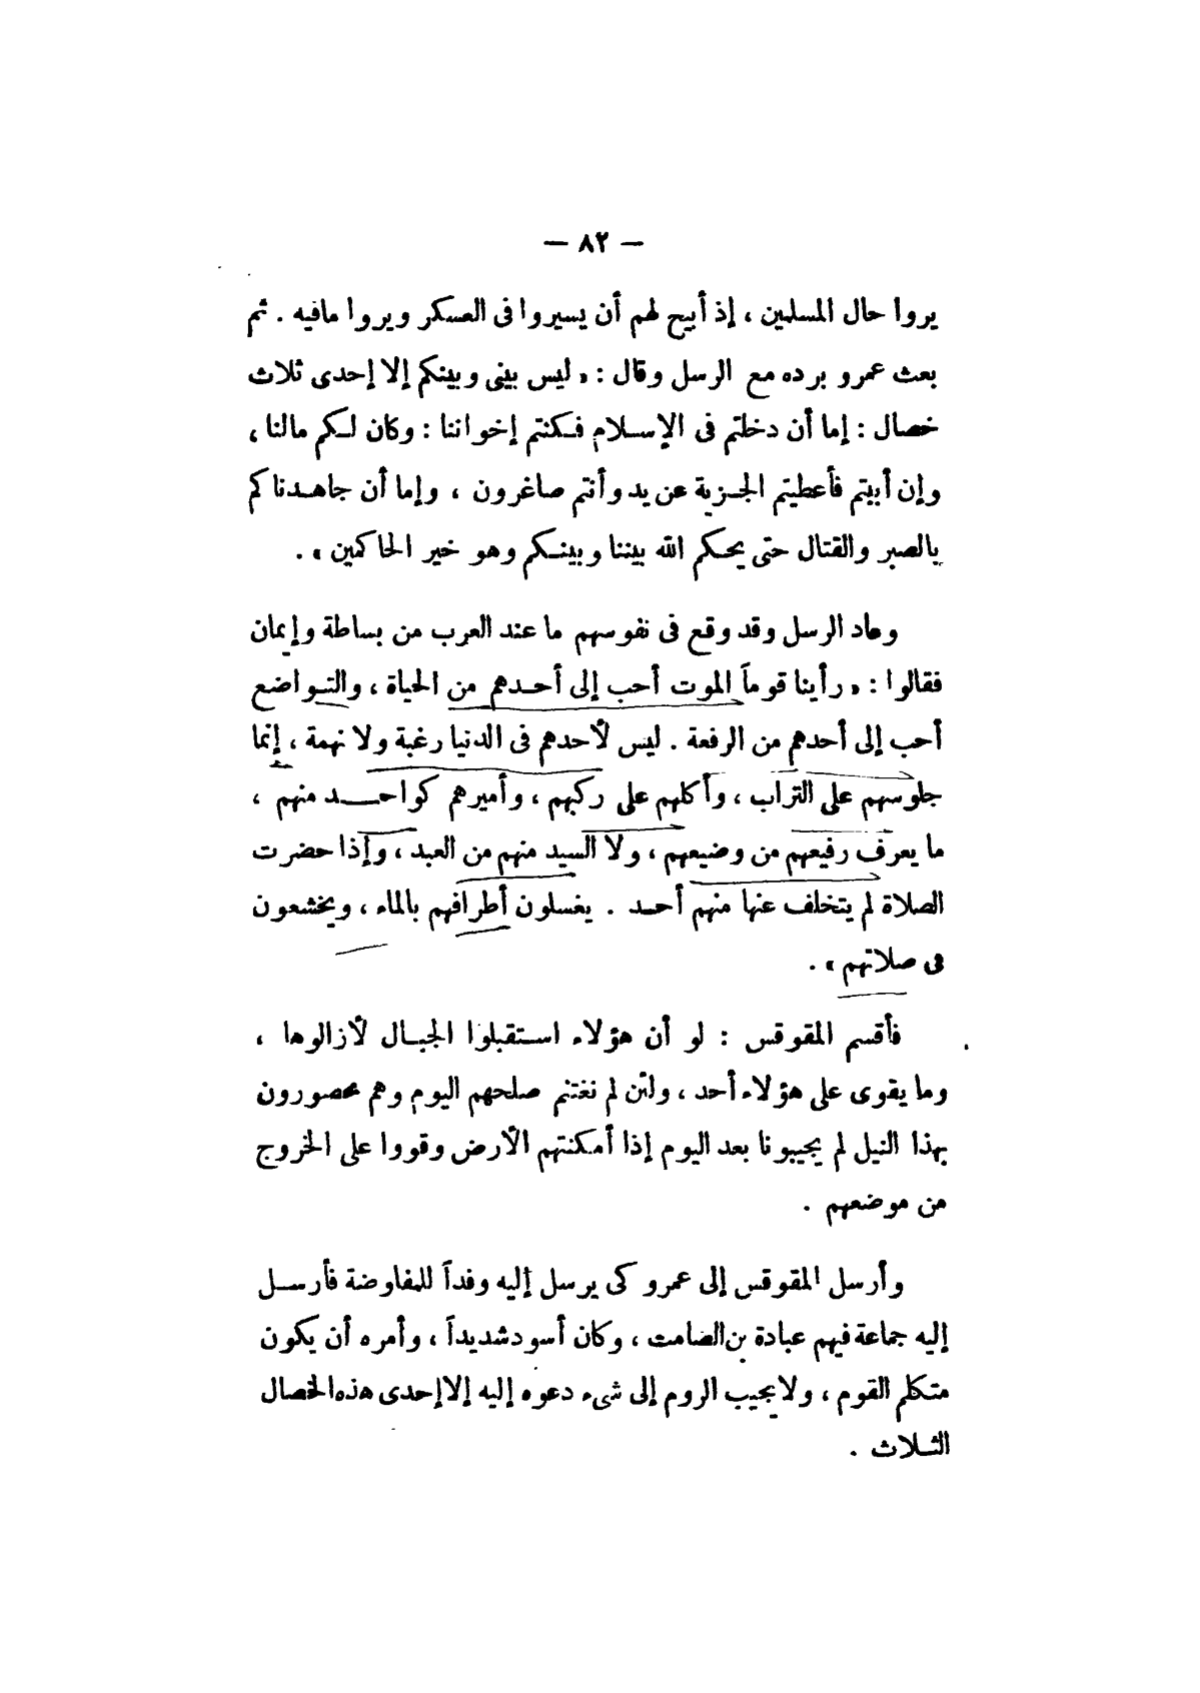 — ٨٢ —
يروا حال المسلمين ، إذ أبيح لهم أن يسيروا فى العسكر ويروا مافيه . ثم
بعث عمرو برده مع الرسل وقال : « ليس بينى وبينكم إلا إحدى ثلاث
خصال : إما أن دخلتم فى الإسلام فكنتم إخواننا : وكان لكم مالنا ،
وإن أبيتم فأعطيتم الجزية عن يد وأنتم صاغرون ، وإما أن جاهدناكم
بالصبر والقتال حتى يحكم الله بيننا وبينكم وهو خير الحاكمين » .
وعاد الرسل وقد وقع فى نفوسهم ما عند العرب من بساطة وإيمان
فقالوا : « رأينا قوماً الموت أحب إلى أحدهم من الحياة ، والتواضع
أحب إلى أحدهم من الرفعة . ليس لأحدهم فى الدنيا رغبة ولا نهمة ، إنما
جلوسهم على التراب ، وأكلهم على ركبهم ، وأميرهم كواحد منهم ،
ما يعرف رفيعهم من وضيعهم ، ولا السيد منهم من العبد ، وإذا حضرت
الصلاة لم يتخلف عنها منهم أحد . يغسلون أطرافهم بالماء ، ويخشعون
فى صلاتهم » .
فأقسم المقوقس : لو أن هؤلاء استقبلوا الجبال لأزالوها ،
وما يقوى على هؤلاء أحد ، ولئن لم نغتنم صلحهم اليوم وهم محصورون
بهذا النيل لم يجيبونا بعد اليوم إذا أمكنتهم الأرض وقووا على الخروج
من موضعهم .
وأرسل المقوقس إلى عمرو كى يرسل إليه وفداً للمفاوضة فأرسل
إليه جماعة فيهم عبادة بن الصامت ، وكان أسود شديداً ، وأمره أن يكون
متكلم القوم ، ولا يجيب الروم إلى شىء دعوه إليه إلا إحدى هذه الخصال
الثلاث .